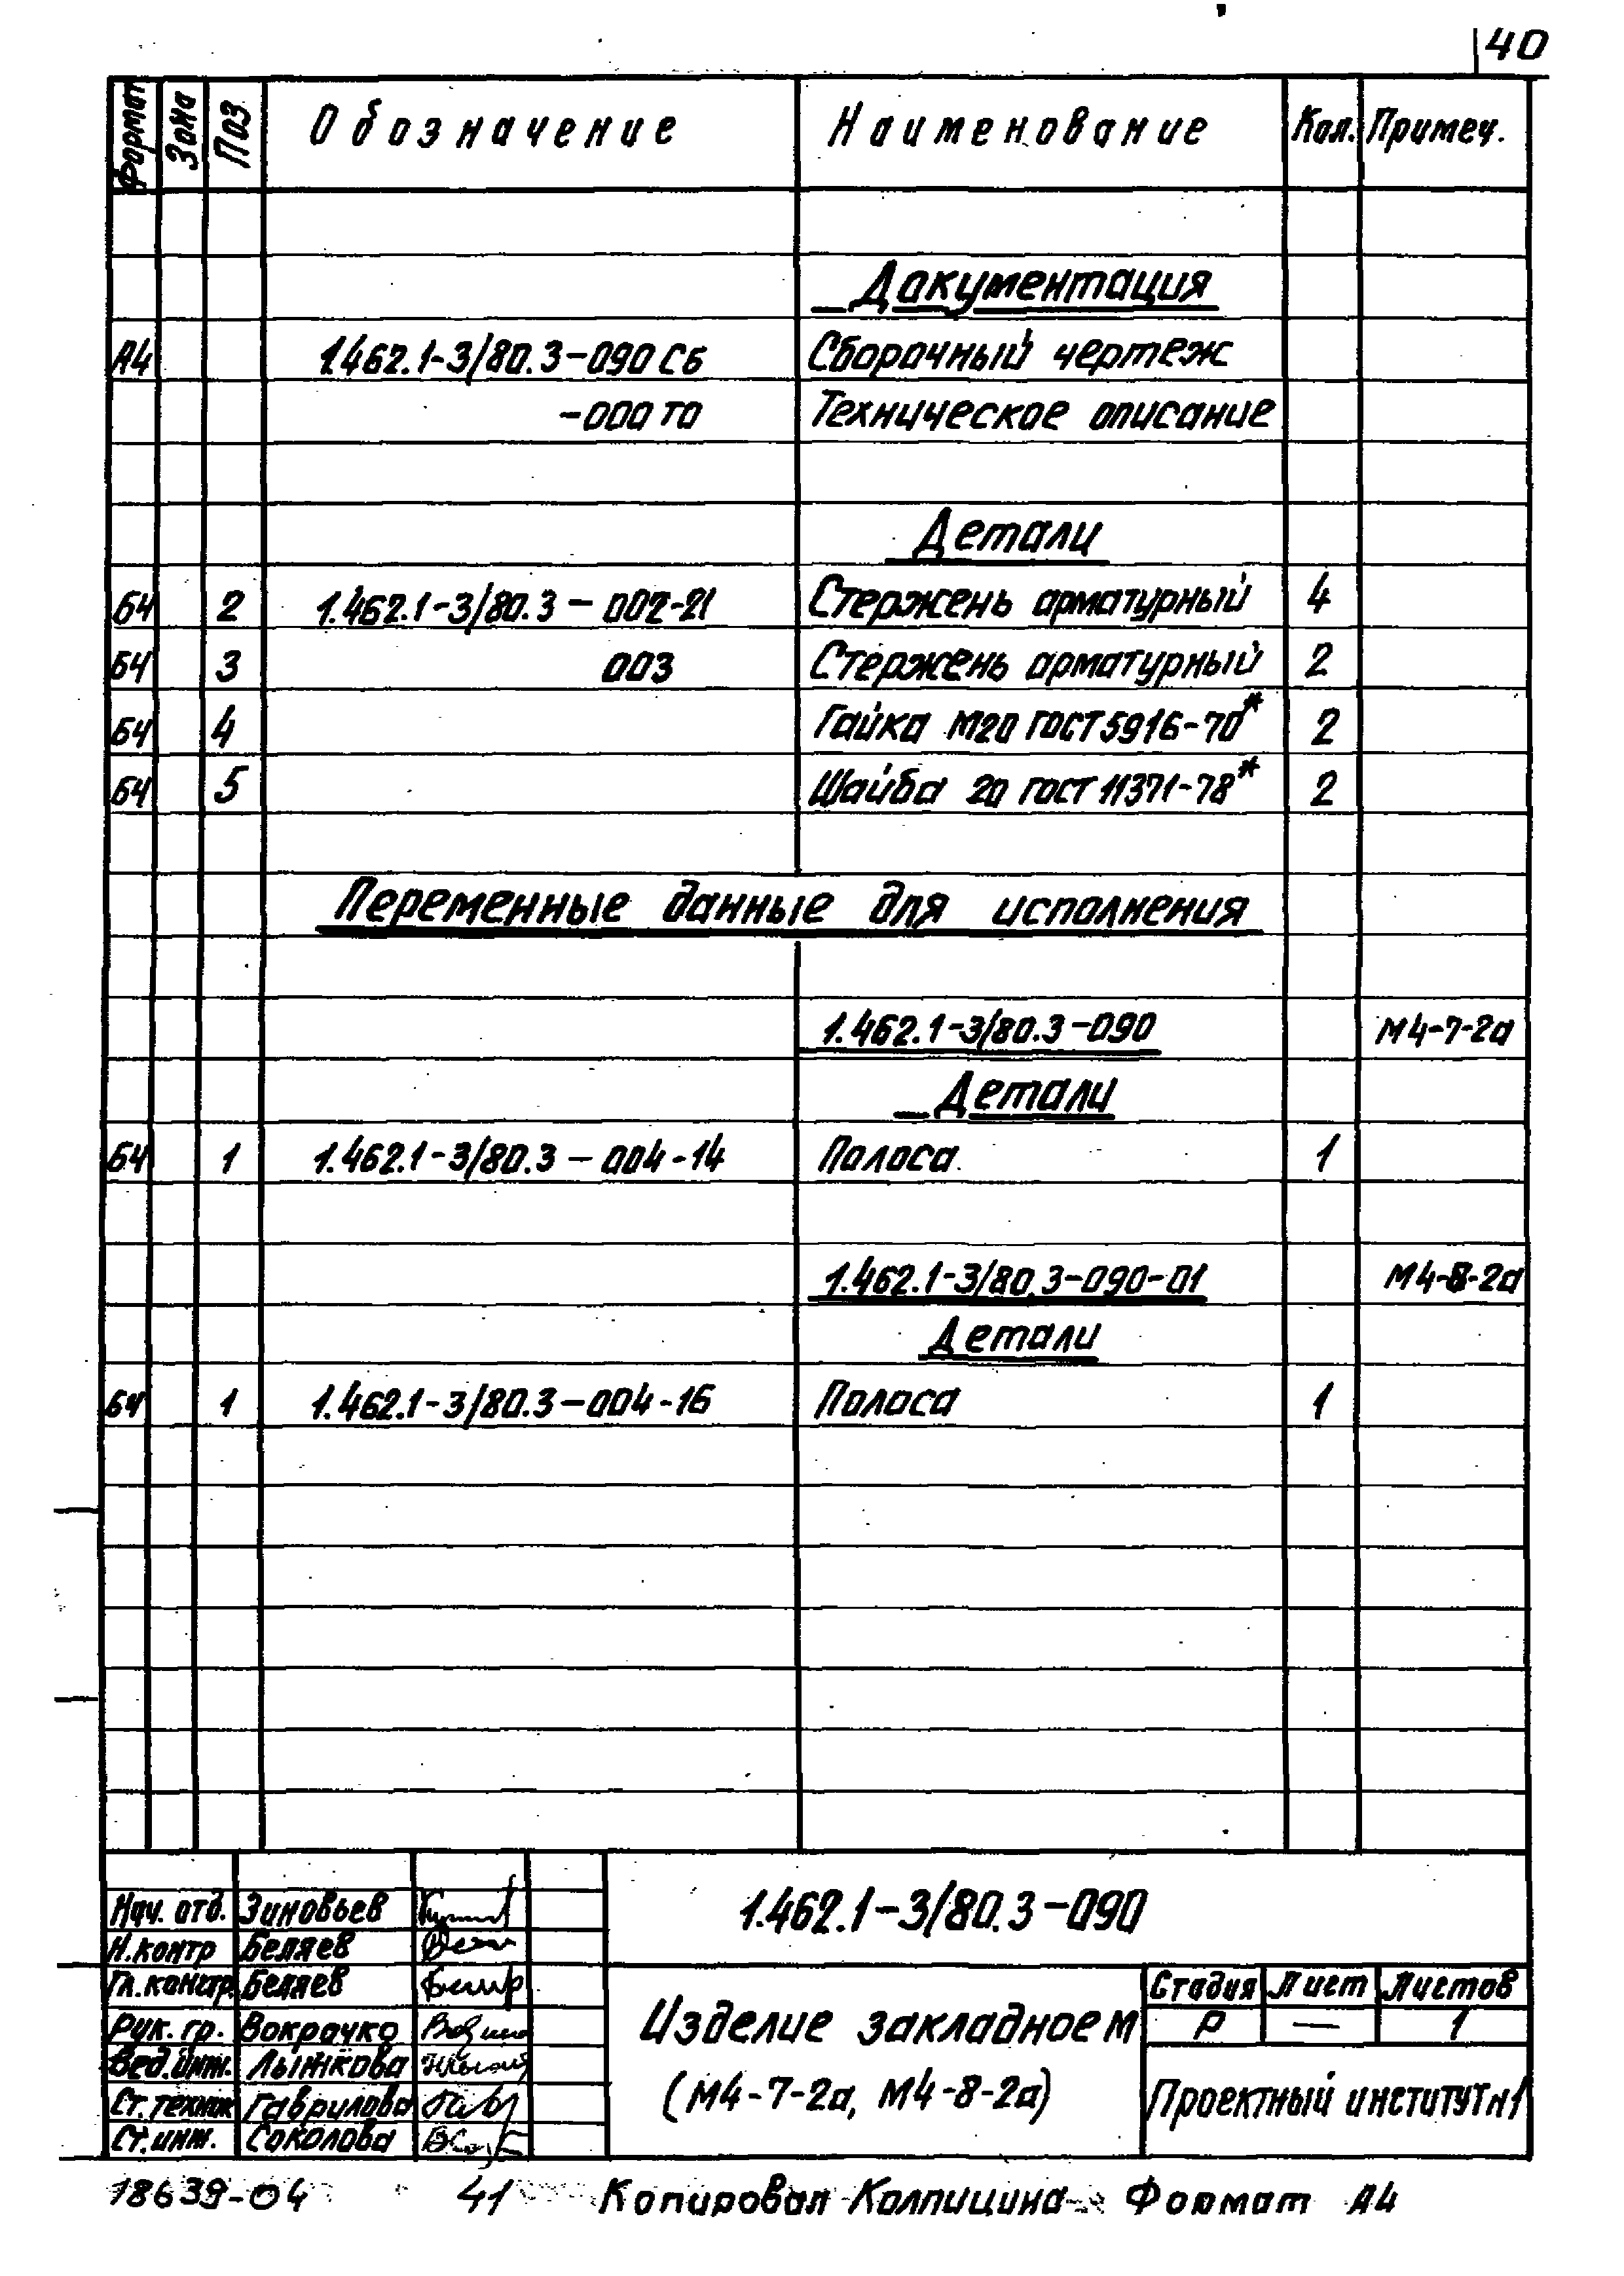 40
Формат Зона Поз Обозначение Наименование Кол. Примеч.
Документация
А4 1.462.1-3/80.3-090 СБ Сборочный чертеж
-000 ТО Техническое описание
Детали
БЧ 2 1.462.1-3/80.3-002-21 Стержень арматурный 4
БЧ 3 003 Стержень арматурный 2
БЧ 4 Гайка М20 ГОСТ 5916-70* 2
БЧ 5 Шайба 20 ГОСТ 11371-78* 2
Переменные данные для исполнения
1.462.1-3/80.3-090 М4-7-2а
Детали
БЧ 1 1.462.1-3/80.3-004-14 Полоса 1
1.462.1-3/80.3-090-01 М4-8-2а
Детали
БЧ 1 1.462.1-3/80.3-004-16 Полоса 1
Нач. отд. Зиновьев
Н.контр Беляев
Гл.констр. Беляев
Рук. гр. Вокрачко
Вед.инж. Лыжкова
Ст.техник Гаврилова
Ст.инж. Соколова
1.462.1-3/80.3-090
Изделие закладное М
(М4-7-2а, М4-8-2а)
Стадия Лист Листов
Р — 1
Проектный институт №1
18639-04 41 Копировал Колпицина Формат А4